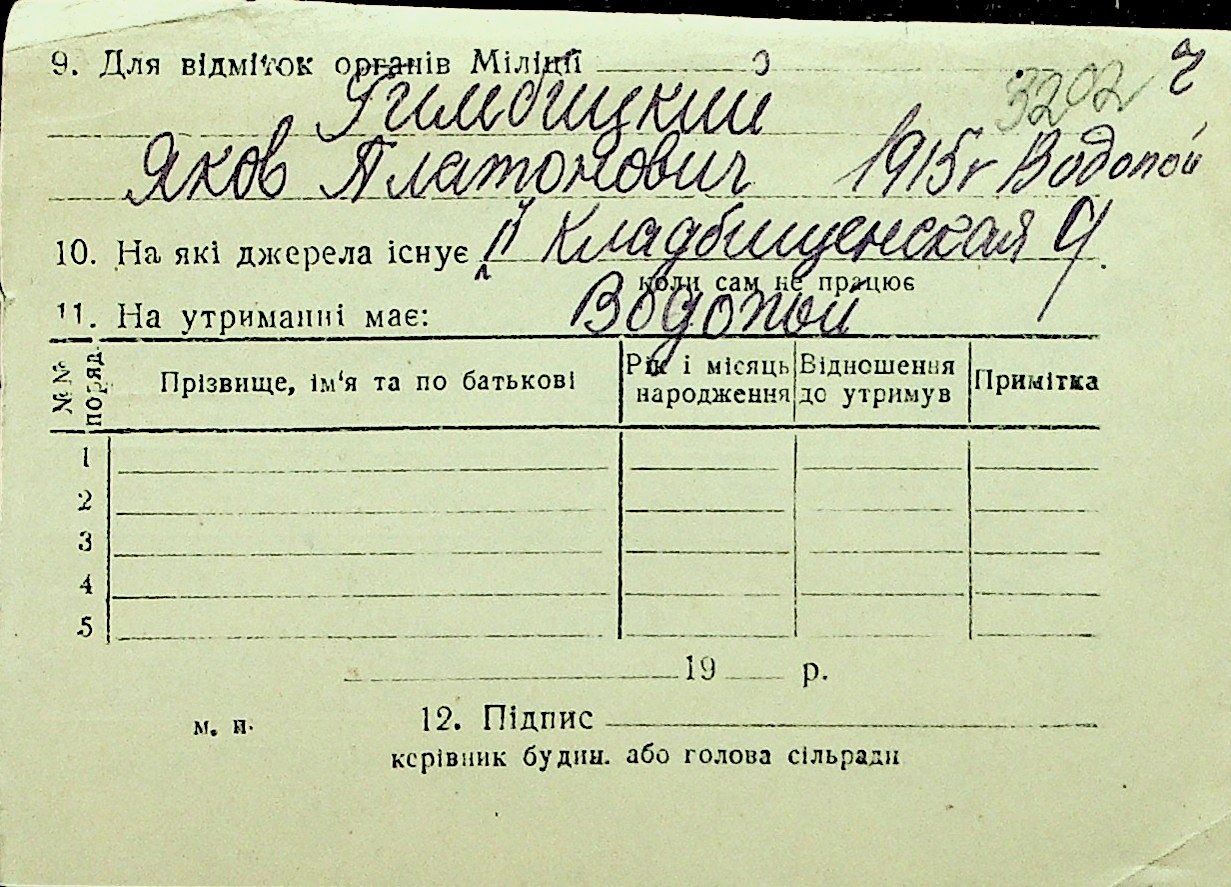 9. Для відміток органів Міліції
3202
Яков Платонович 1915 г Водопой
10. На які джерела існує Кладбищенская
коли сам не працює
11. На утриманні має: Водопой
№№ поряд. Прізвище, ім'я та по батькові Рік і місяць народження Відношення до утримув Примітка
1
2
3
4
5
19 р.
м. п. 12. Підпис
керівник будин. або голова сільради